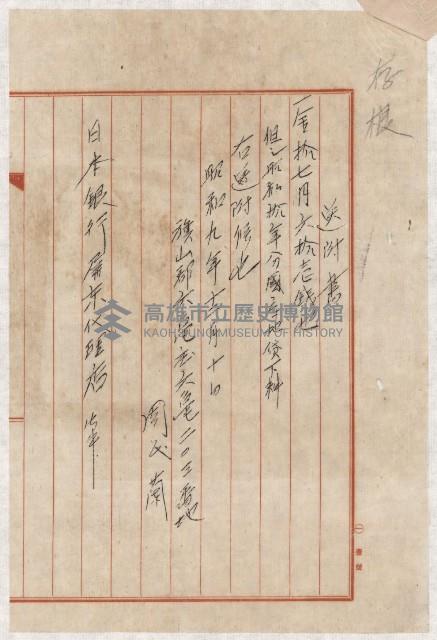 存根
送附書
一金拾七円六拾壱銭也
但シ昭和拾年分國有地貸下料
右送附候也
昭和九年十一月十日
旗山郡六亀庄六亀二〇三番地
周文蘭
日本銀行屏東代理店 御中
高雄市立歷史博物館
KAOHSIUNG MUSEUM OF HISTORY